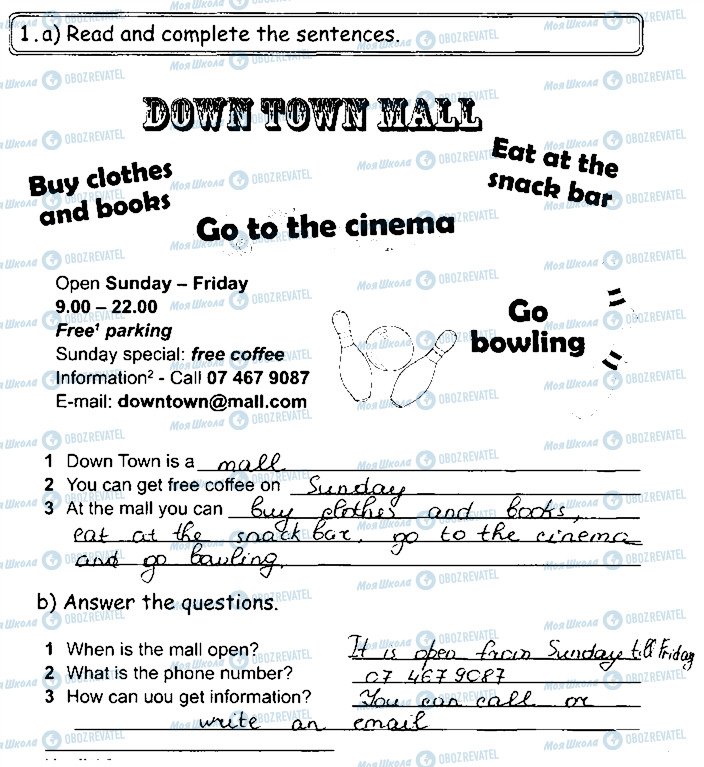 1. a) Read and complete the sentences.
DOWN TOWN MALL
Buy clothes
and books
Eat at the
snack bar
Go to the cinema
Open Sunday – Friday
9.00 – 22.00
Free¹ parking
Sunday special: free coffee
Information² - Call 07 467 9087
E-mail: downtown@mall.com
Go
bowling
1 Down Town is a mall
2 You can get free coffee on Sunday
3 At the mall you can buy clothes and books,
eat at the snack bar, go to the cinema
and go bawling.
b) Answer the questions.
1 When is the mall open? It is open from Sunday till Friday
2 What is the phone number? 07 467 9087
3 How can uou get information? You can call or
write an email
Моя Школа OBOZREVATEL